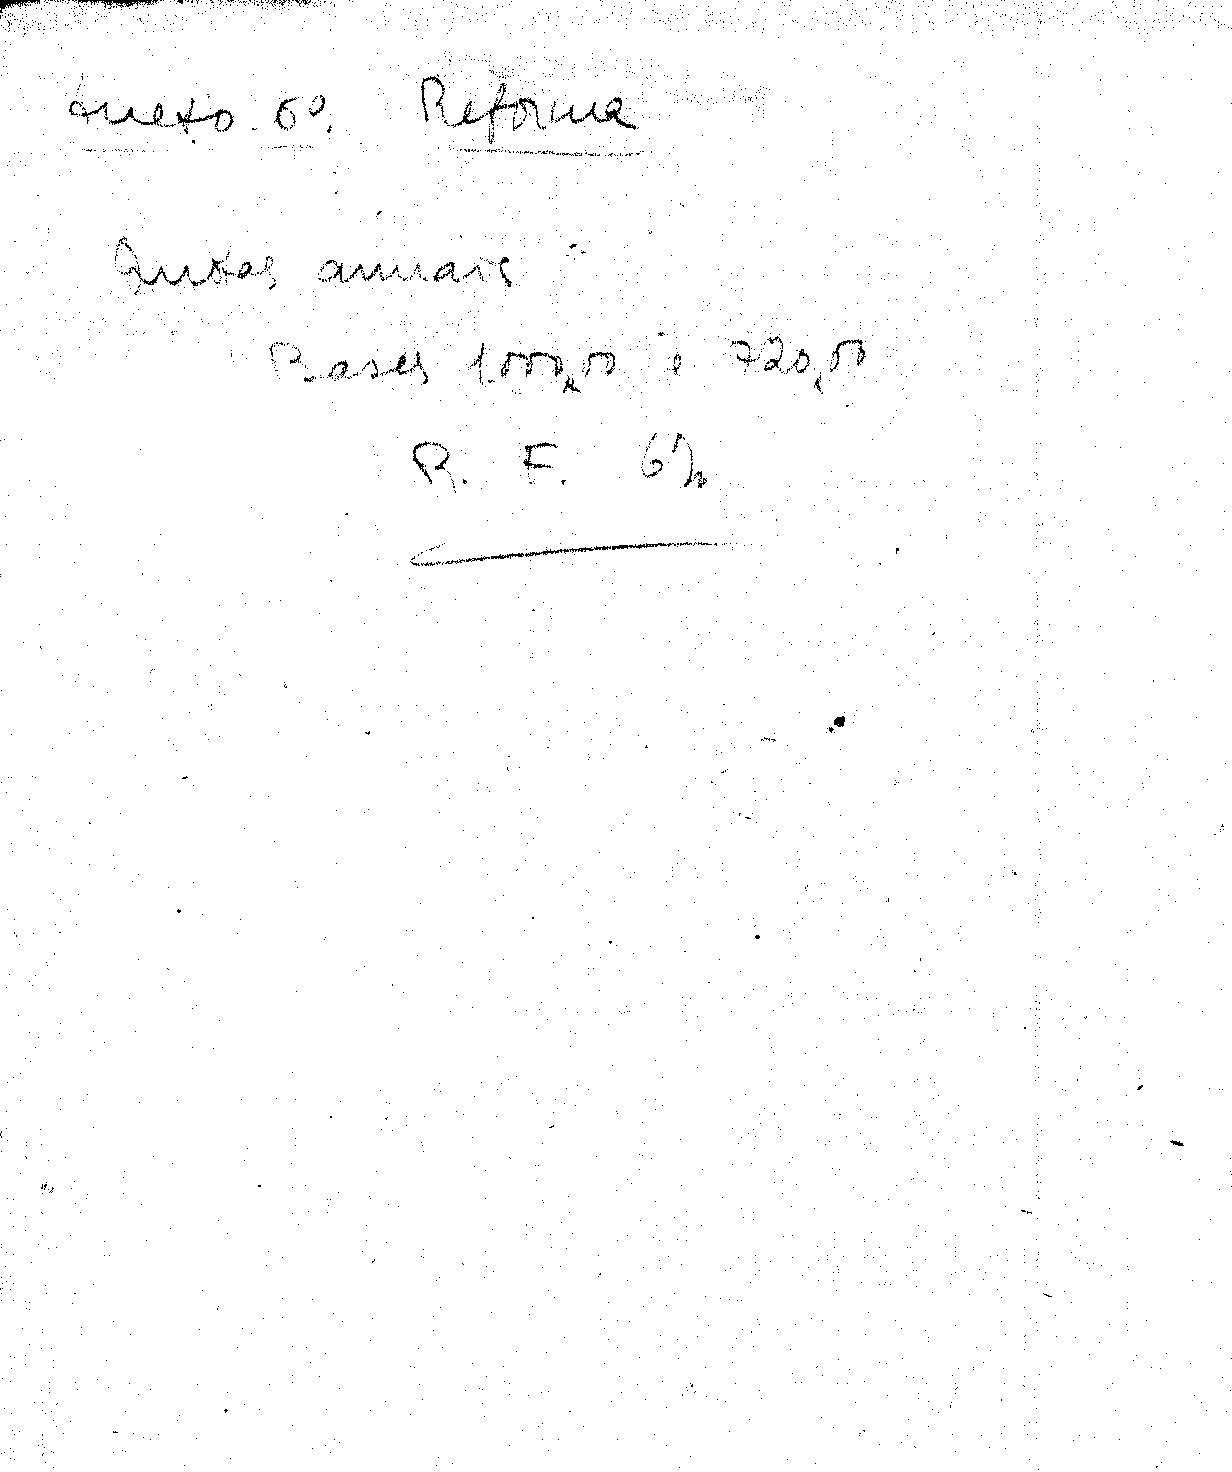 Anexo 6º. Reforma
Quotas anuais
Bases 1.000,00 e 720,00
R. F. 6%